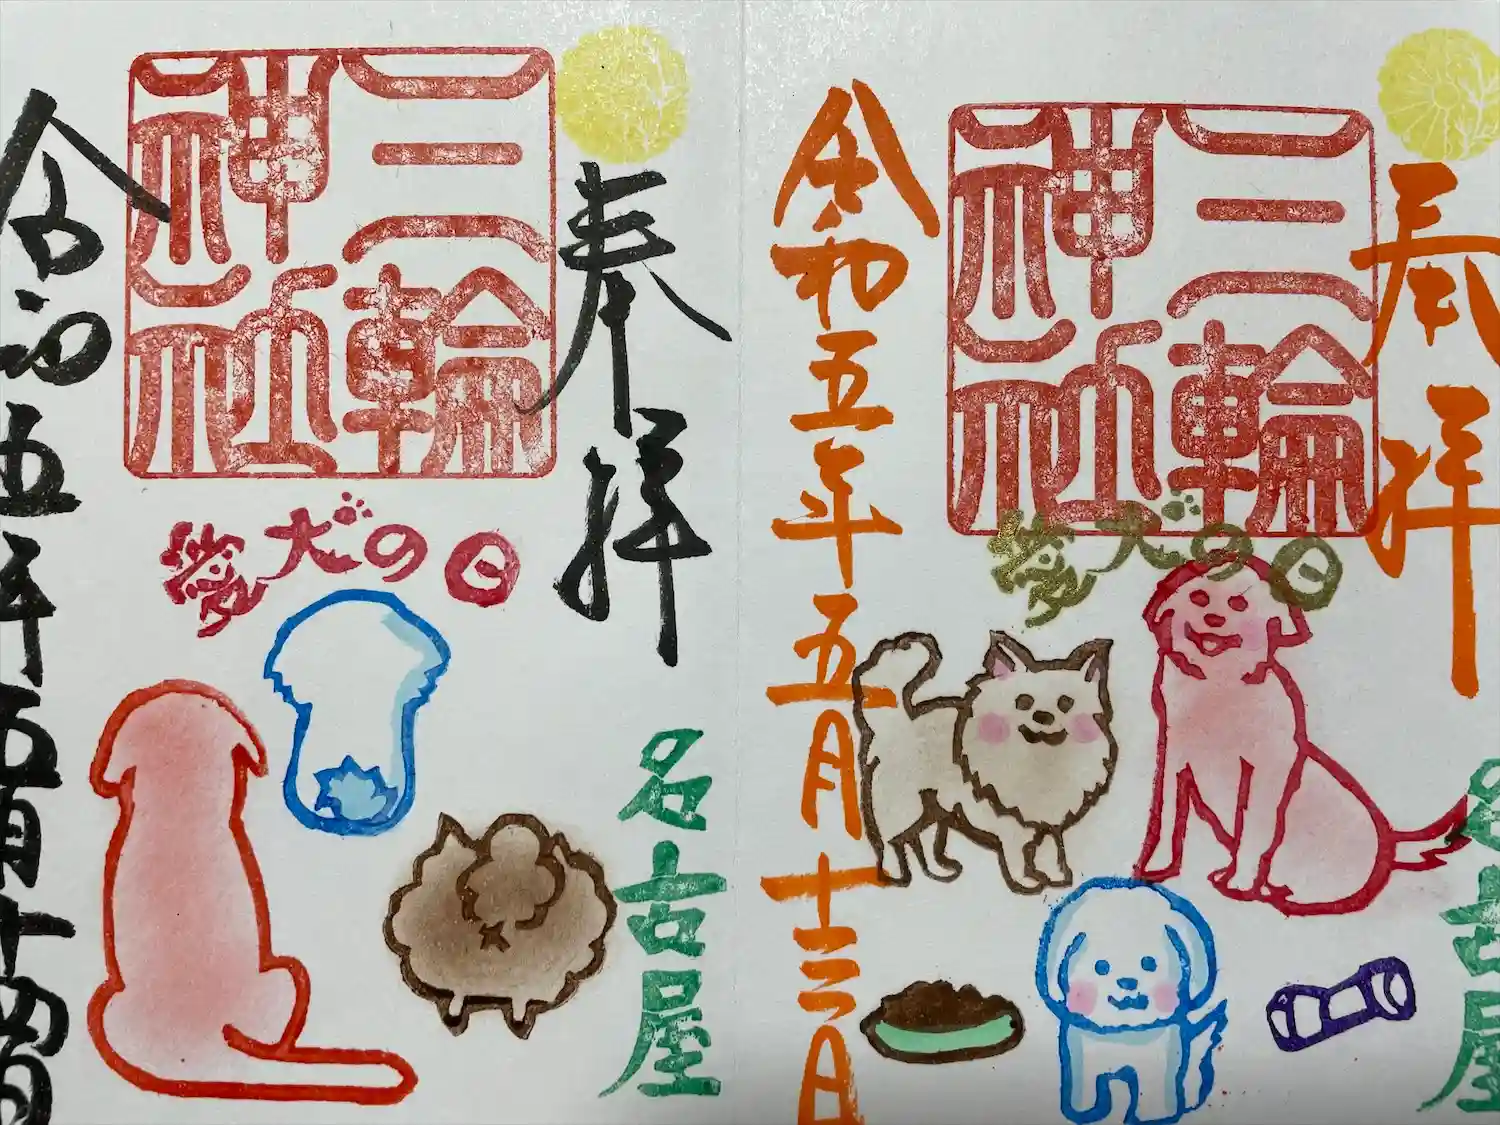 奉拝
三輪
神社
愛犬の日
名古屋
令和五年五月十三日
奉拝
三輪
神社
愛犬の日
名古屋
令和五年五月十四日